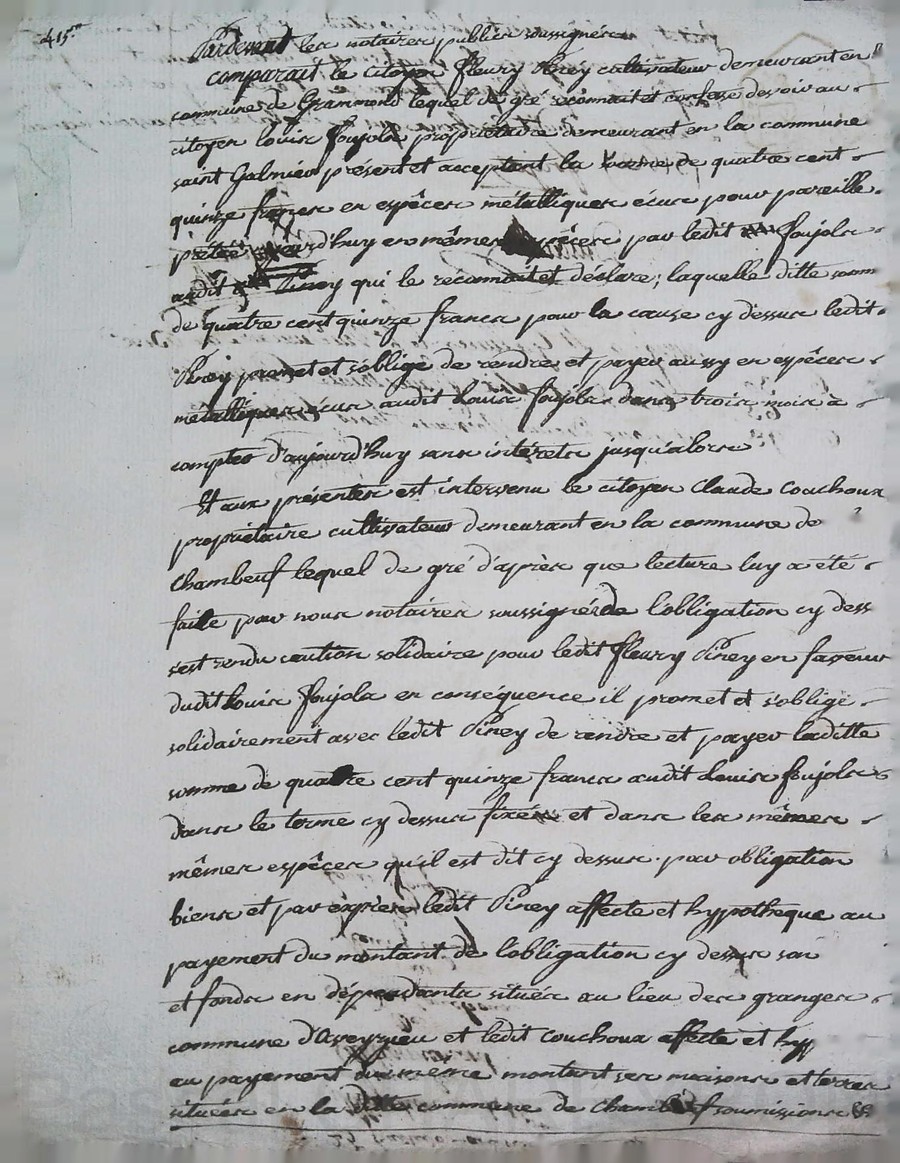 415 #
Pardevant les notaires publics soussignés
comparait le citoyen fleury Piney cultivateur demeurant en
commune de Grammond lequel de gré reconnait et confesse devoir au
citoyen Louis foujols propriétaire demeurant en la commune
saint Galmier présent et acceptant la somme de quatre cent
quinze francs en espêces métalliques écus pour pareille
prêtée aujourd'huy en mêmes espêces par ledit foujols
audit Piney qui le reconnait et déclare, laquelle ditte som
de quatre cent quinze francs pour la cause cy dessus ledit
Piney promet et s'oblige de rendre et payer aussy en espêces
métalliques écus audit Louis foujols dans trois mois à
compter d'aujourd'huy sans intérets jusqu'alors
Et aux présentes est intervenu le citoyen Claude Couchoux
propriétaire cultivateur demeurant en la commune de
Chambeuf lequel de gré d'après que lecture luy a été
faite par nous notaires soussignés de l'obligation cy dess
s'est rendu caution solidaire pour ledit fleury Piney en faveur
dudit Louis foujols en conséquence il promet et s'oblige
solidairement avec ledit Piney de rendre et payer laditte
somme de quatre cent quinze francs audit Louis foujols
dans le terme cy dessus fixé et dans les mêmes
mêmes espêces qu'il est dit cy dessus par obligation
biens et par exprès ledit Piney affecte et hypotheque au
payement du montant de l'obligation cy dessus son
et fonds en dépendants situés au lieu des granges
commune d'aveyzieu et ledit couchoux affecte et hyp
au payement du même montant ses maisons et terres
situées en la ditte commune de chambeuf soumissions &